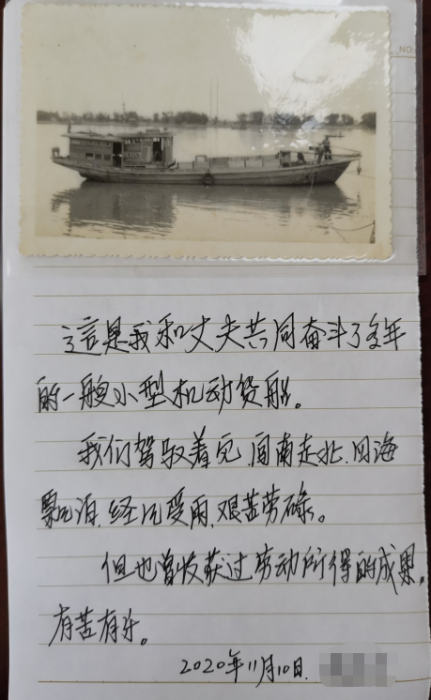 這是我和丈夫共同奋斗了多年
的一艘小型机动货船。
我们驾驭着它,闯南走北,四海
飘泊,经风受雨,艰苦劳碌。
但也曾收获过劳动所得的成果。
有苦有乐。
2020年11月10日.
NO